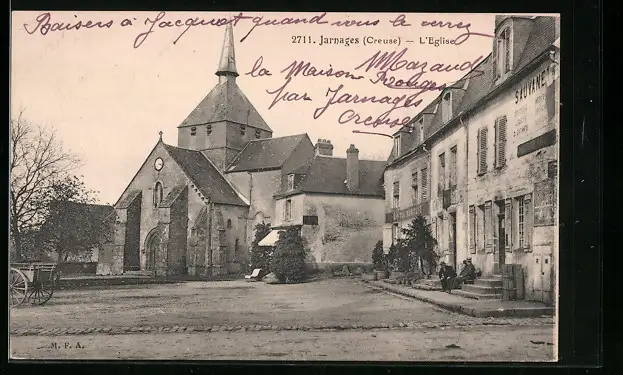 Baisers à Jacquot quand vous le verrez
2711. Jarnages (Creuse) — L'Eglise
Mazaud
la Maison Rouge
par Jarnages
Creuse
SAUVANET
M. F. A.